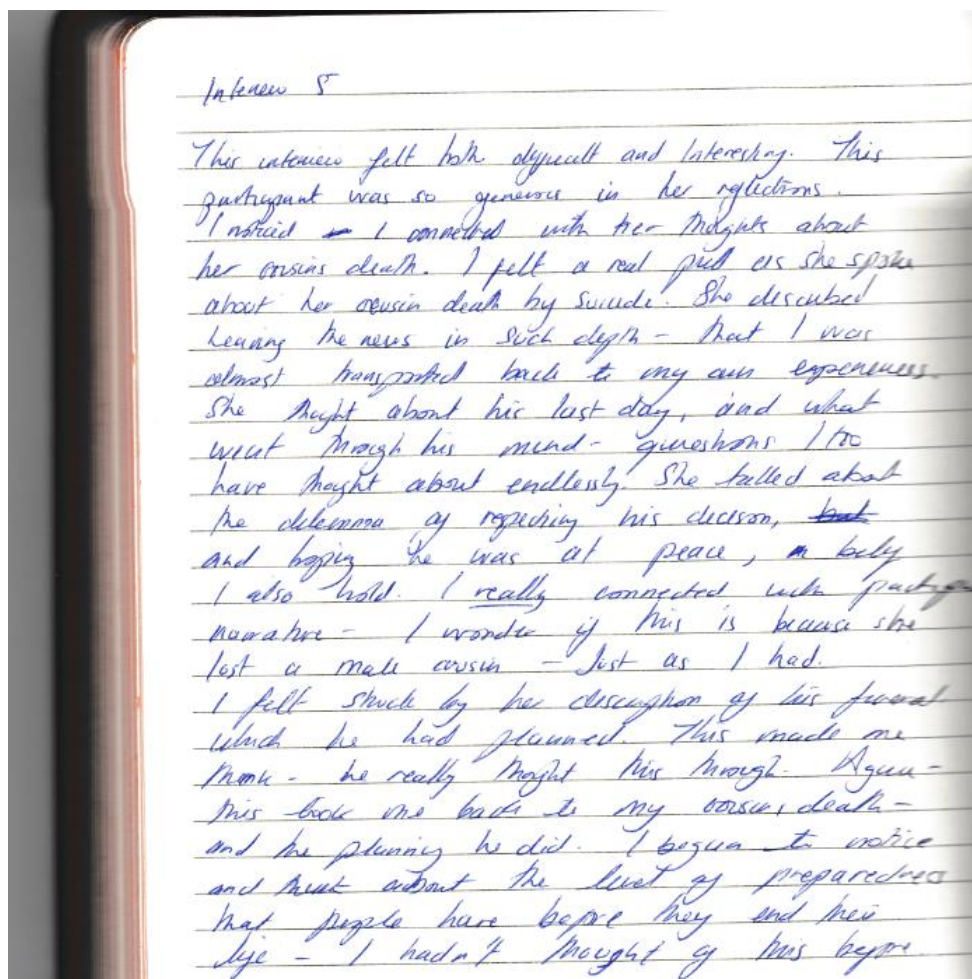 Interview 5
This interview felt both difficult and Interesting. This
participant was so generous in her reflections.
I noticed I connected with her thoughts about
her cousins death. I felt a real pull as she spoke
about her cousin death by suicide. She described
hearing the news in such depth - that I was
almost transported back to my own experiences.
She thought about his last day, and what
went through his mind - questions I too
have thought about endlessly. She talked about
the dilemma of respecting his decision, but
and hoping he was at peace, a
I also hold. I really connected with
narrative - I wonder if this is because she
lost a male cousin - Just as I had.
I felt struck by her description of his funeral
which he had planned. This made me
think - he really thought this through. Again -
this took me back to my cousins death -
and the planning he did. I began to notice
and think about the level of preparedness
that people have before they end their
life - I hadn't thought of this before.